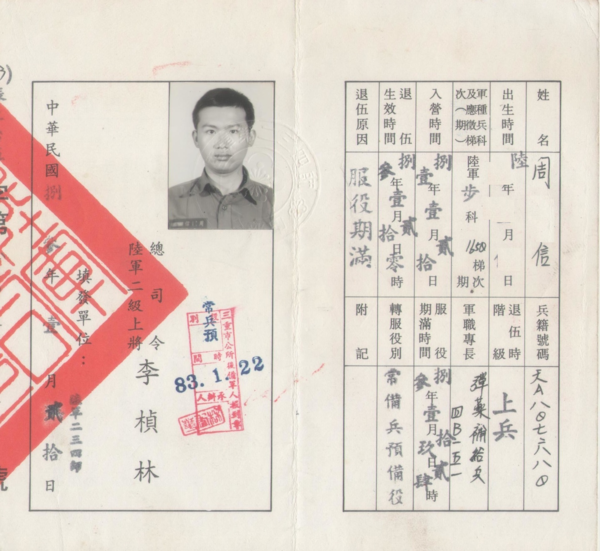 姓名
周信
出生時間
陸年月日
軍種兵科及應徵梯次(期)
陸軍步科1608梯次期
入營時間
捌壹年壹月貳拾日
退伍生效時間
捌參年壹月貳拾日零時
退伍原因
服役期滿
兵籍號碼
天A八〇七六八〇
退伍時階級
上兵
軍職專長
彈藥補給兵
四B一五一
服役期滿時間
捌參年壹月拾玖日貳肆時
轉服役別
常備兵預備役
附記
總司令
陸軍二級上將
李楨林
三重市公所後備軍人報到章
役別
常兵預
時間
83.1.22
承辦人
填發單位:
二三四師
中華民國捌參年壹月貳拾日
號